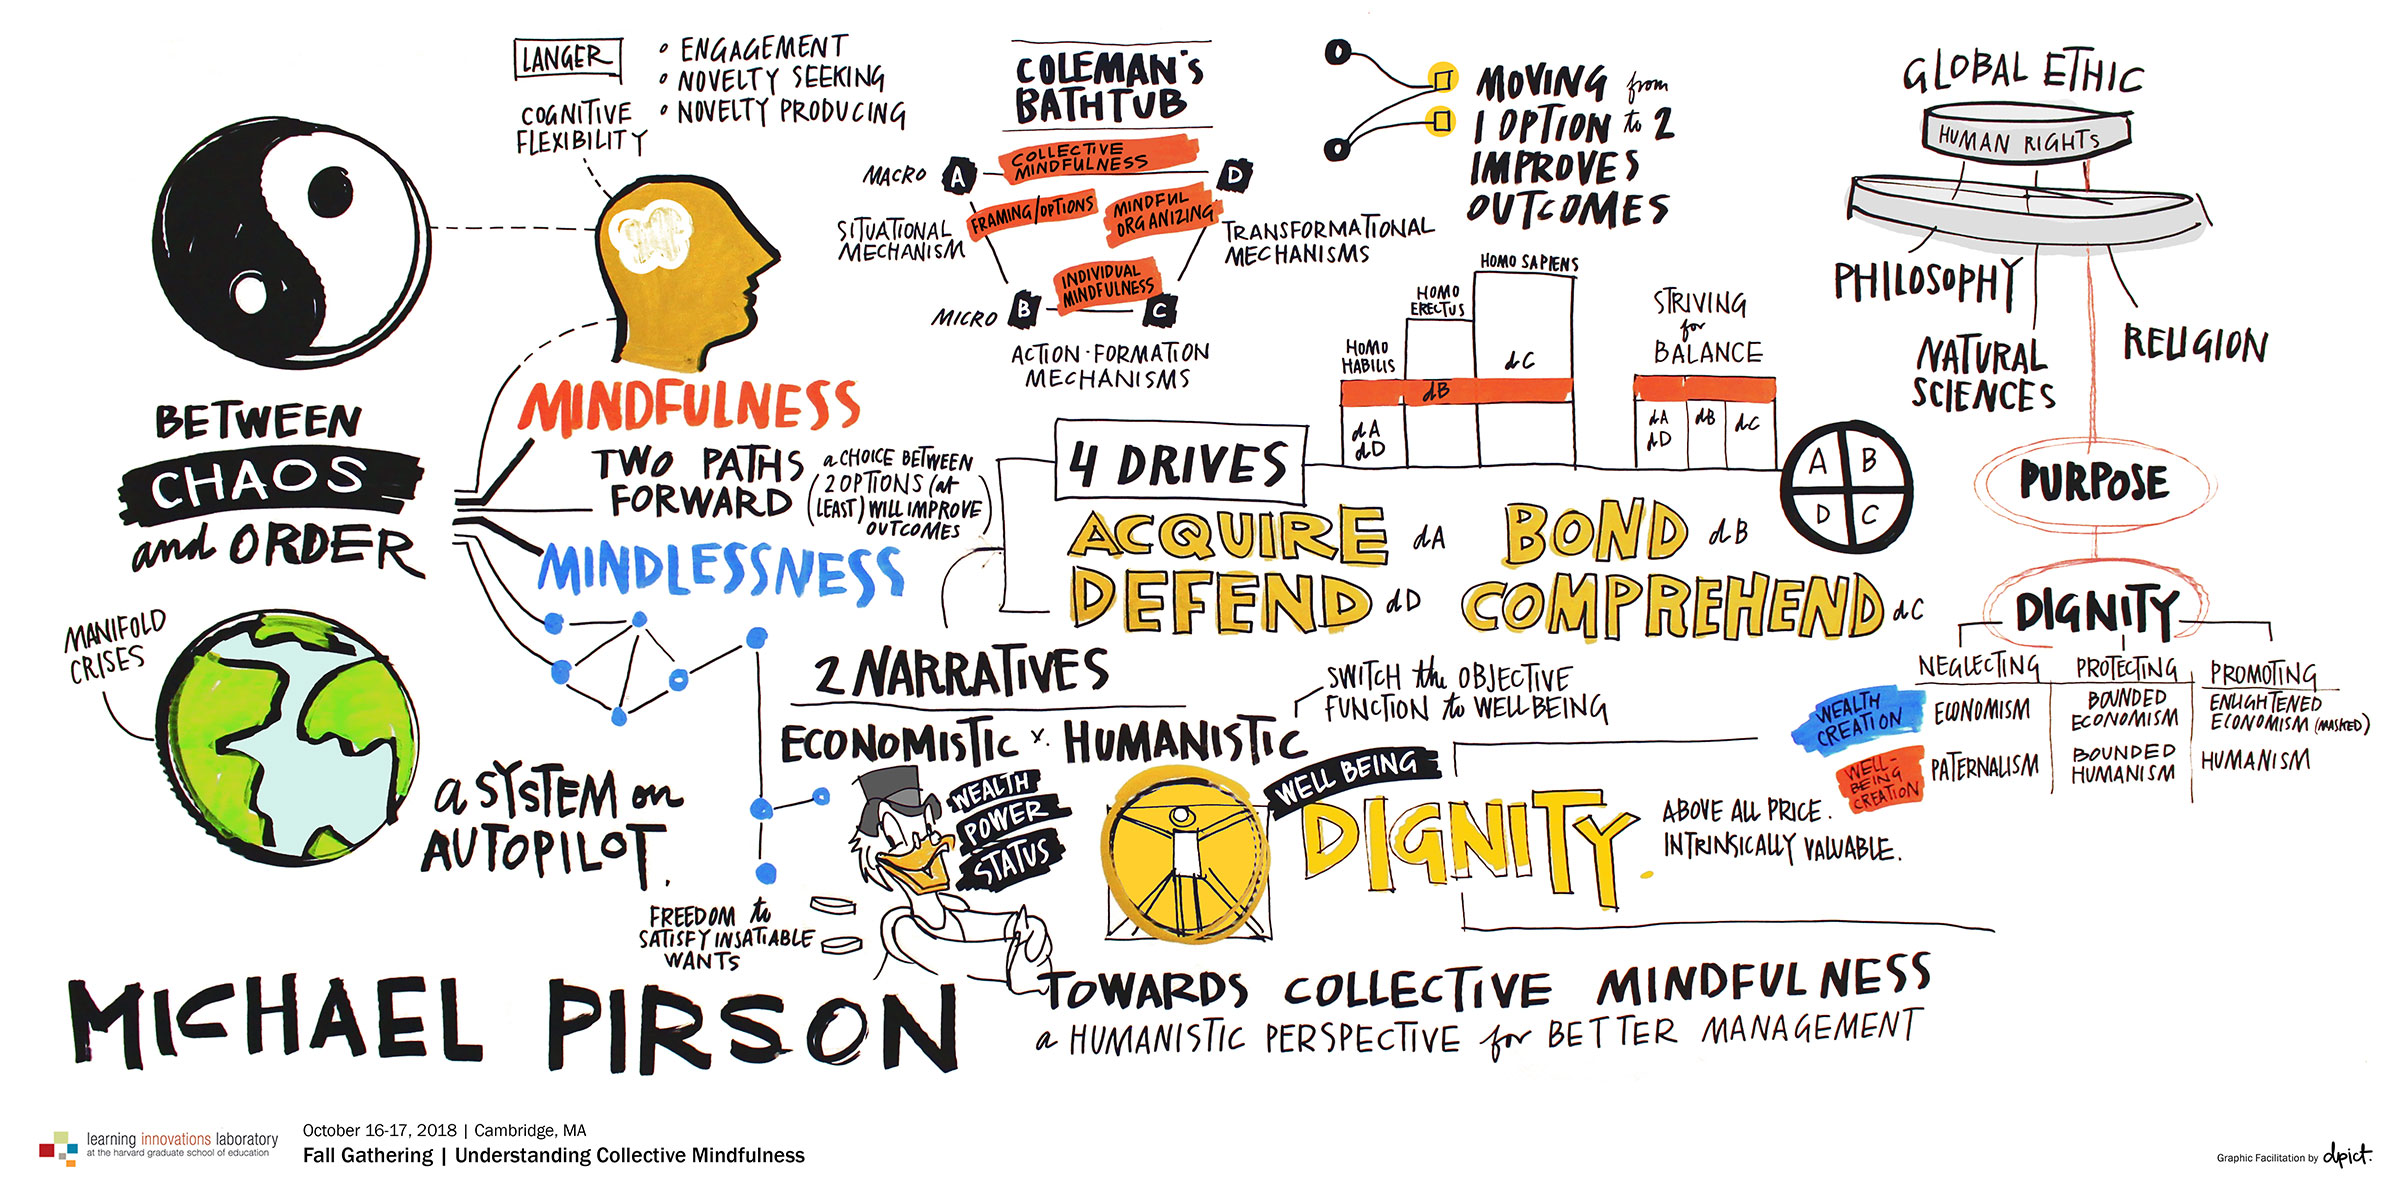 LANGER
• ENGAGEMENT
• NOVELTY SEEKING
• NOVELTY PRODUCING
COGNITIVE
FLEXIBILITY
BETWEEN
CHAOS
and ORDER
MINDFULNESS
TWO PATHS
FORWARD
a CHOICE BETWEEN
2 OPTIONS (at
LEAST) WILL IMPROVE
OUTCOMES
MINDLESSNESS
MANIFOLD
CRISES
a SYSTEM on
AUTOPILOT.
COLEMAN'S
BATHTUB
MACRO
A
COLLECTIVE
MINDFULNESS
D
SITUATIONAL
MECHANISM
FRAMING/OPTIONS
MINDFUL
ORGANIZING
TRANSFORMATIONAL
MECHANISMS
INDIVIDUAL
MINDFULNESS
MICRO
B
C
ACTION-FORMATION
MECHANISMS
MOVING from
1 OPTION to 2
IMPROVES
OUTCOMES
HOMO
HABILIS
HOMO
ERECTUS
HOMO SAPIENS
dC
dB
dA
dD
STRIVING
for
BALANCE
dA
dD
dB
dC
A B
D C
4 DRIVES
ACQUIRE dA
BOND dB
DEFEND dD
COMPREHEND dC
GLOBAL ETHIC
HUMAN RIGHTS
PHILOSOPHY
NATURAL
SCIENCES
RELIGION
PURPOSE
DIGNITY
NEGLECTING PROTECTING PROMOTING
WEALTH
CREATION
ECONOMISM
BOUNDED
ECONOMISM
ENLIGHTENED
ECONOMISM (MASKED)
WELL-
BEING
CREATION
PATERNALISM
BOUNDED
HUMANISM
HUMANISM
2 NARRATIVES
ECONOMISTIC x. HUMANISTIC
SWITCH the OBJECTIVE
FUNCTION to WELLBEING
WEALTH
POWER
STATUS
FREEDOM to
SATISFY INSATIABLE
WANTS
WELL BEING
DIGNITY.
ABOVE ALL PRICE.
INTRINSICALLY VALUABLE.
MICHAEL PIRSON
TOWARDS COLLECTIVE MINDFULNESS
a HUMANISTIC PERSPECTIVE for BETTER MANAGEMENT
learning innovations laboratory
at the harvard graduate school of education
October 16-17, 2018 | Cambridge, MA
Fall Gathering | Understanding Collective Mindfulness
Graphic Facilitation by dpict.